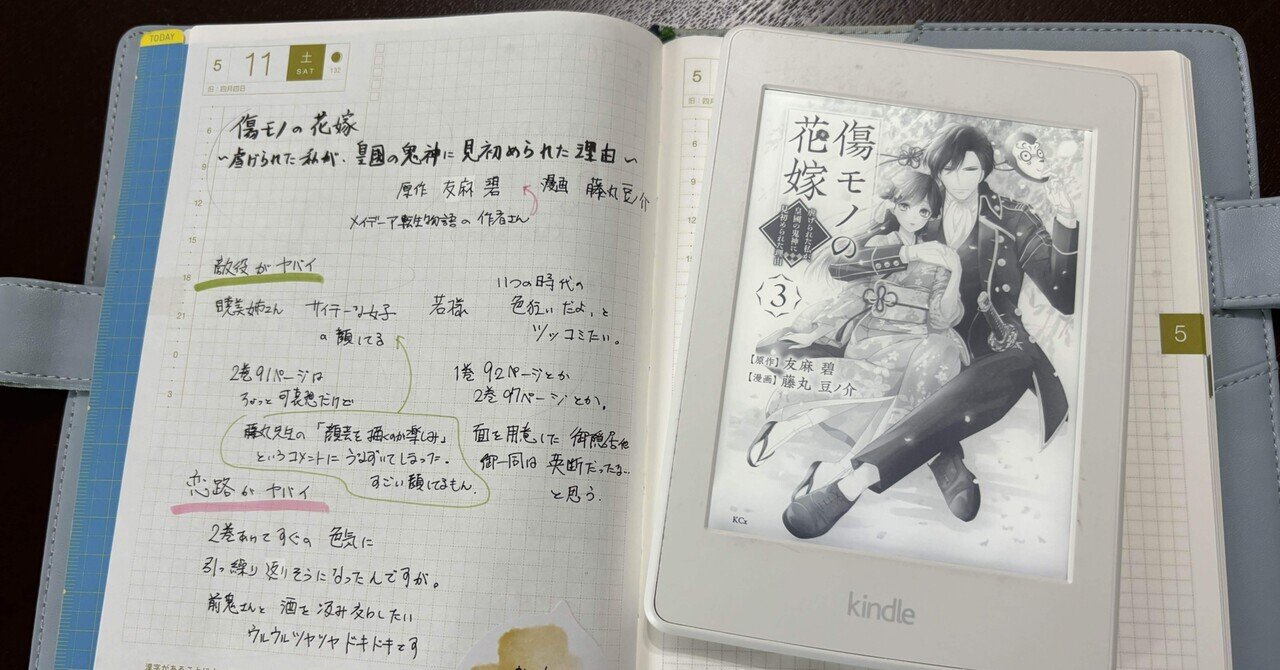 TODAY
5 11 土 SAT
132
旧:四月四日
傷モノの花嫁
~虐げられた私が、皇国の鬼神に見初められた理由~
原作 友麻碧 漫画 藤丸豆ノ介
メイデーア転生物語の作者さん
敵役がヤバイ
暁美姉さん サイテーな女子の顔してる
2巻91ページは
ちょっと可哀想だけど
藤丸先生の「顔芸を描くのが楽しみ」
というコメントにうなずいてしまった。
すごい顔してるもん。
若様
いつの時代の
色狂いだよ、と
ツッコミたい。
1巻92ページとか
2巻97ページとか。
面を用意した御隠居他
御一同は英断だったな…
と思う。
恋路がヤバイ
2巻あけてすぐの色気に
引っ繰り返りそうになったんですが。
前鬼さんと酒を汲み交わしたい
ウルウルツヤツヤドキドキです
6
9
12
15
18
21
0
3
5
旧:四
傷モノの
花嫁
虐げられた私が、
皇國の鬼神に
見初められた理由
3
【原作】友麻 碧
【漫画】藤丸 豆ノ介
KCx
kindle
5